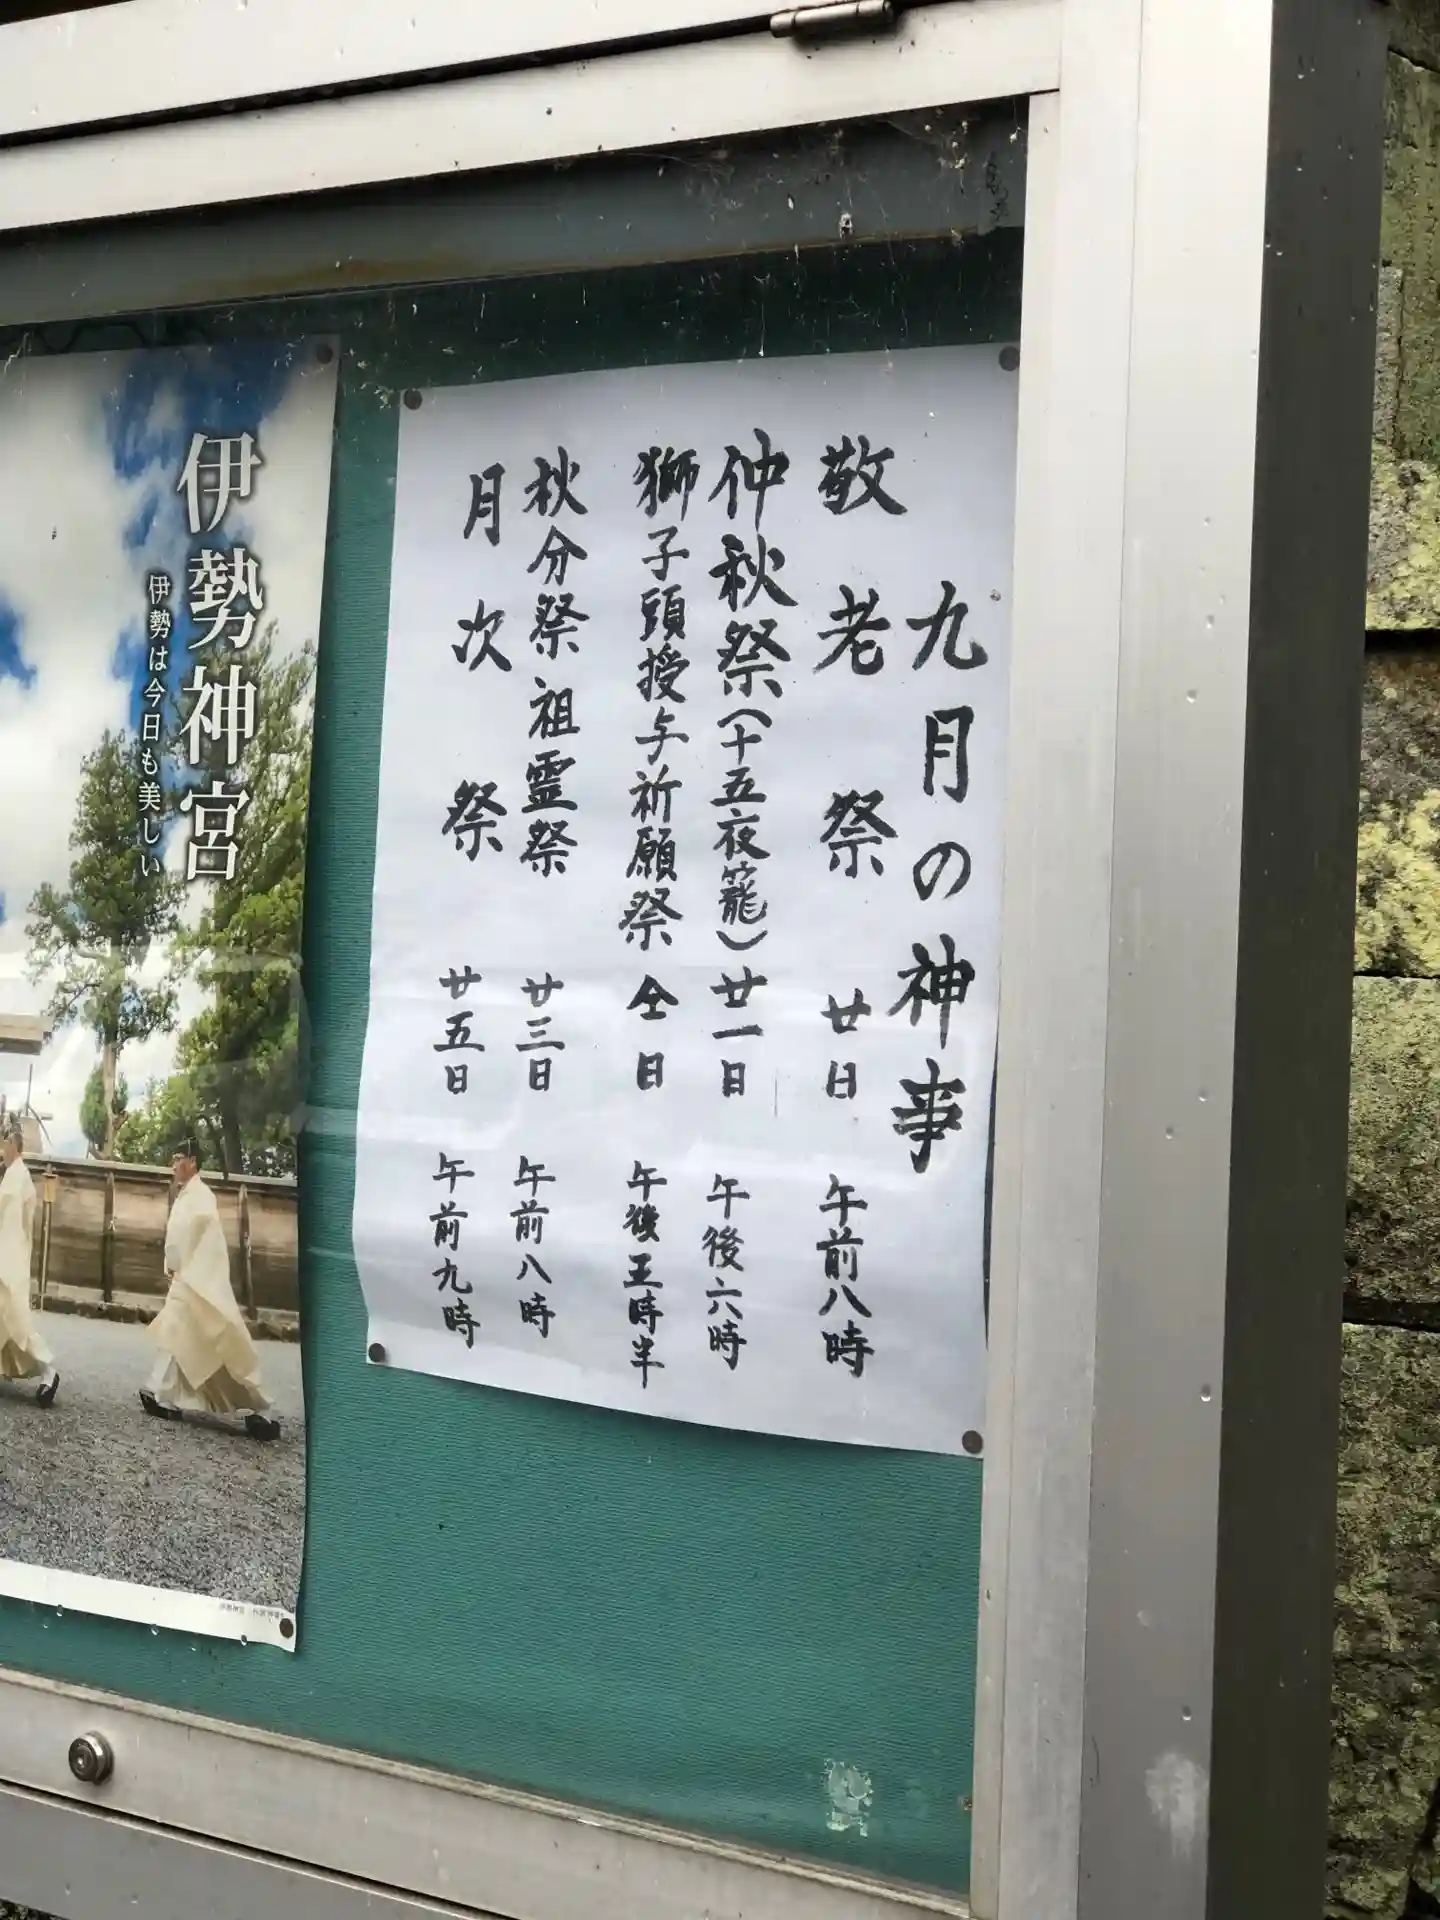 九月の神事
敬老祭 廿日 午前八時
仲秋祭(十五夜籠) 廿一日 午後六時
獅子頭授与祈願祭 仝日 午後五時半
秋分祭 祖霊祭 廿三日 午前八時
月次祭 廿五日 午前九時
伊勢神宮
伊勢は今日も美しい